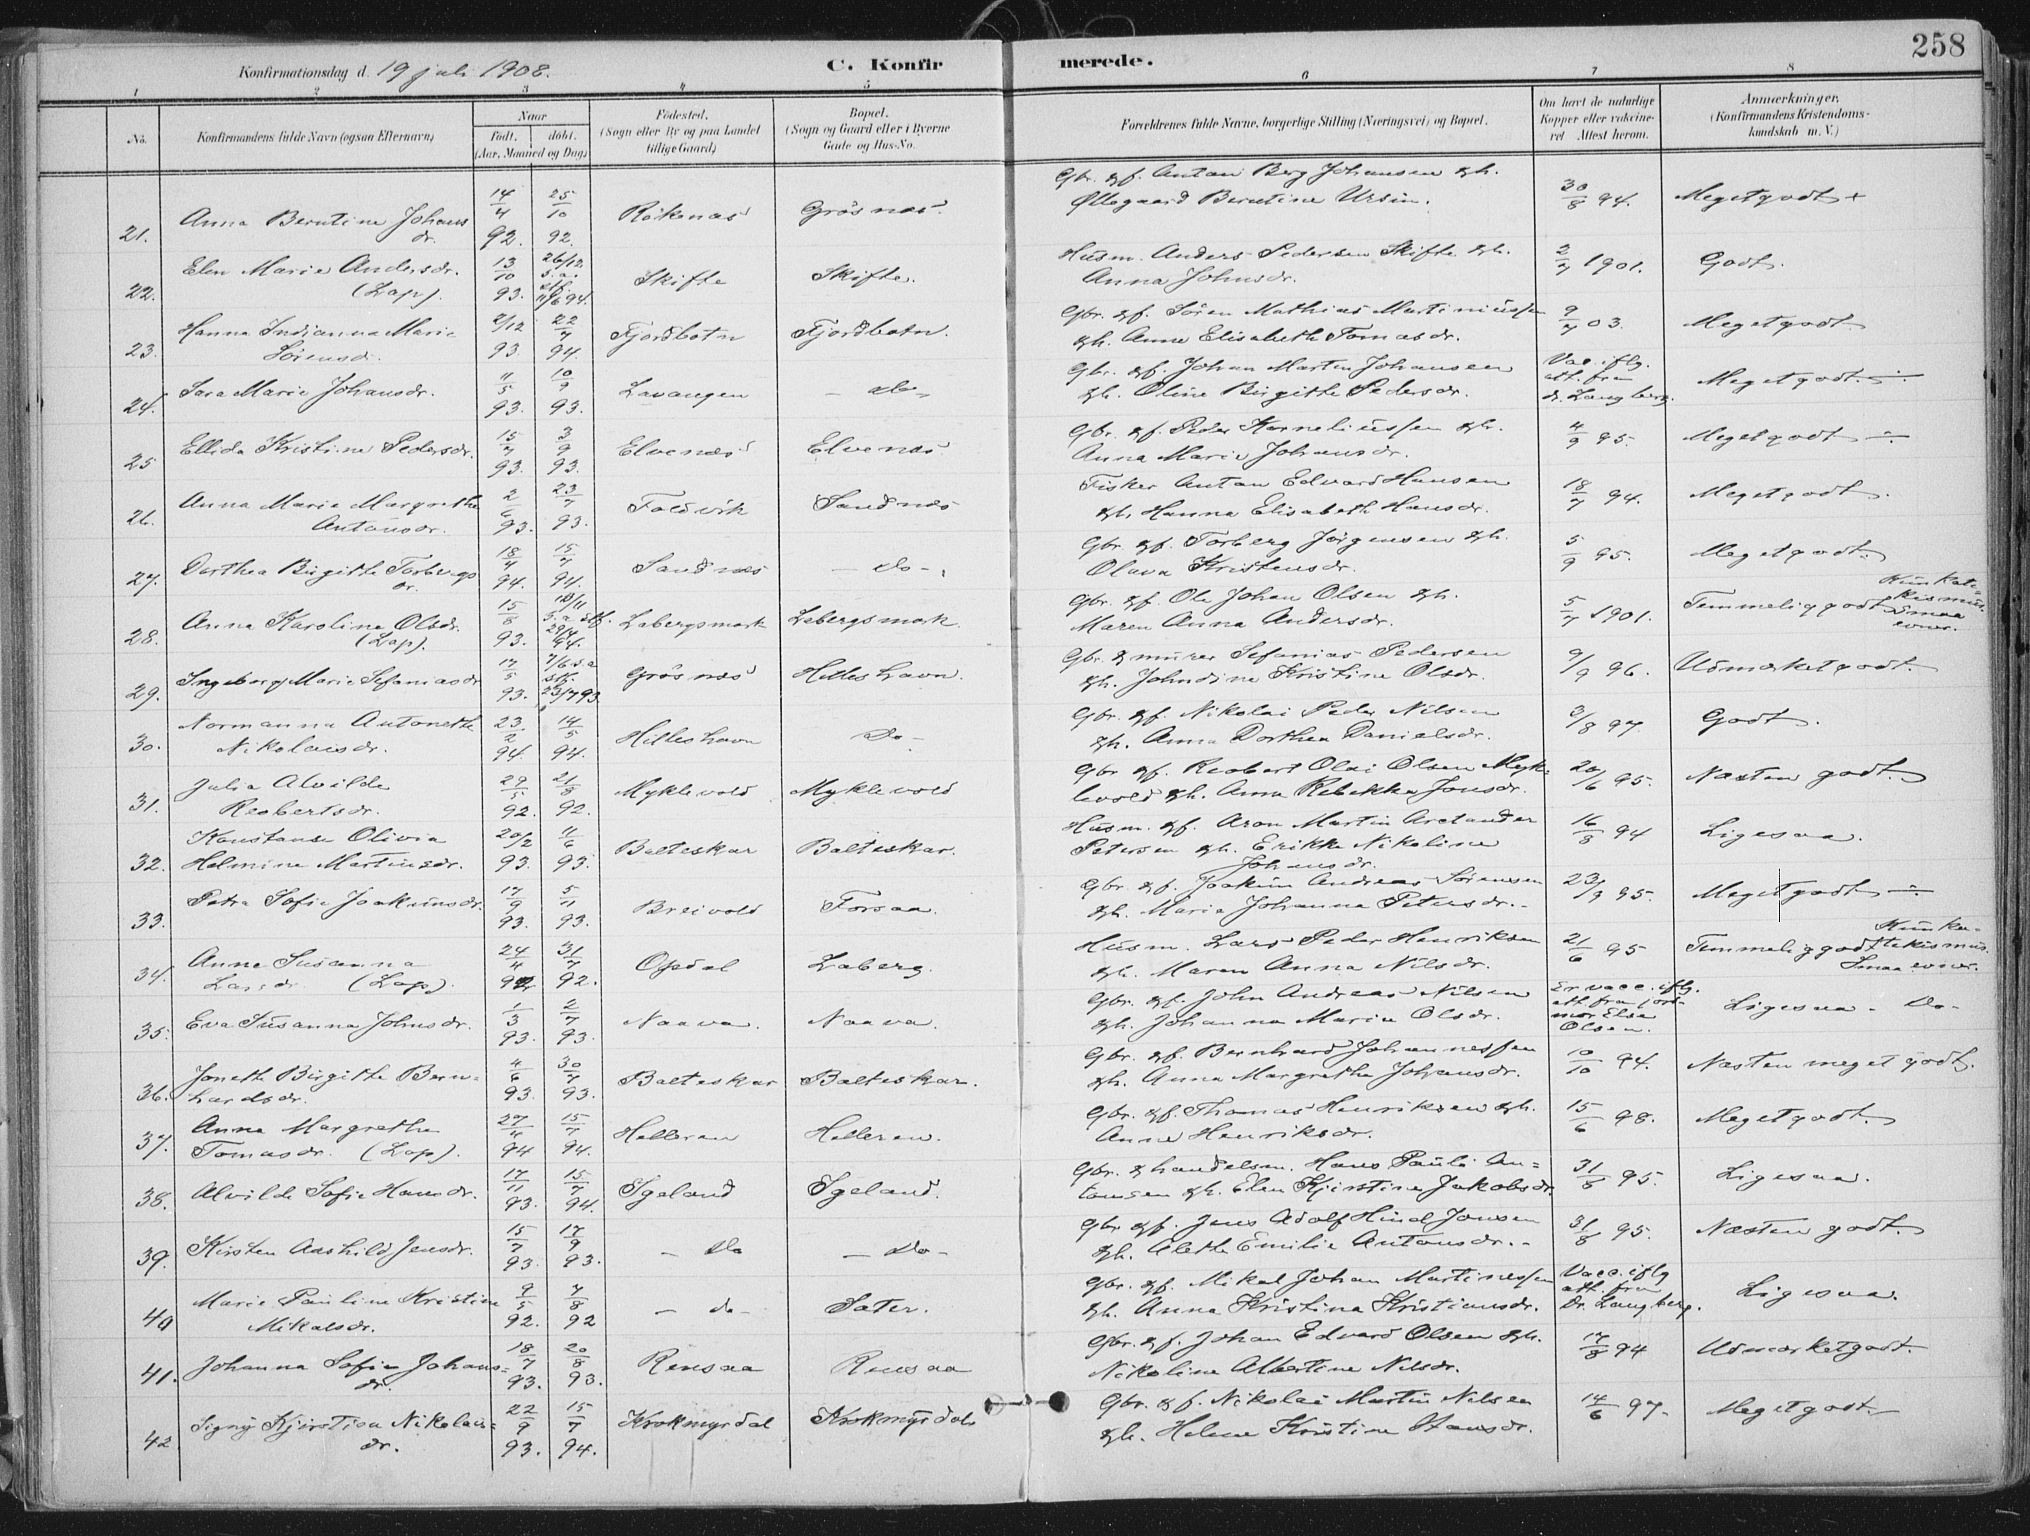 258
Konfirmationsdag d. 19 juli 1908. C. Konfirmerede.
1 2 3 4 5 6 7 8
No. Konfirmandens fulde Navn (ogsaa Efternavn) Naar født. døbt. (Aar, Maaned og Dag) Fødested. (Sogn eller By og paa Landet tillige Gaard) Bopæl. (Sogn og Gaard eller i Byerne Gade og Hus-No. Forældrenes fulde Navne, borgerlige Stilling (Næringsvei) og Bopæl. Om havt de naturlige Kopper eller vakcineret Attest herom. Anmærkninger, (Konfirmandens Kristendomskundskab m. V.)
21. Anna Berntine Johansdr. 14/4 92. 25/10 92. Røkenæs Grøsnæs. Gbr. & f. Anton Berg Johansen & h. Ollegaard Berntine Ursin. 30/8 94. Meget godt +
22. Elen Marie Andersdr. (Lap). 13/10 93. 26/12 s.a. stf. 11/6 94. Skifte Skifte. Husm. Anders Pedersen Skifte & h. Anna Johnsdr. 2/7 1901. Godt.
23. Hanna Indianna Marie Sørensd. 2/12 93. 22/7 94. Fjordbotn Fjordbotn. Gbr. & f. Søren Mathias Martiniussen & h. Anne Elisabeth Tomasdr. 9/7 03. Meget godt
24. Sara Marie Johansdr. 11/5 93. 10/9 93. Lavangen - do - Gbr. & f. Johan Martin Johansen & h. Oline Birgitte Pedersdr. Vac. iflg. att. fra dr. Langberg. Meget godt. ÷
25 Ellida Kristine Pedersdr. 15/7 93. 3/9 93. Elvenæs Elvenæs Gbr. & f. Peder Korneliussen & h. Anna Marie Johansdr. 4/9 95. Meget godt ÷
26. Anna Marie Margrethe Antonsdr. 2/6 93. 23/7 93. Foldvik Sandnæs Fisker Anton Edvard Hansen & h. Hanna Elisabeth Hansdr. 18/7 94. Meget godt.
27. Dorthea Birgitte Torbergsdr. 18/4 94. 15/7 94. Sandnæs - do -. Gbr. & f. Torberg Jørgensen & h. Olava Kristensdr. 5/9 95. Meget godt.
28. Anna Karoline Olsdr. (Lap). 15/8 93. 10/11 s.a. stf. 29/4 94. Labergsmark Labergsmark. Gbr. & f. Ole Johan Olsen & h. Maren Anna Andersdr. 5/7 1901. Temmelig godt Kun katekismus. Smaa evner.
29. Ingeborg Marie Stefaniasdr. 17/5 93. 7/6 s.a stf. 23/7 93. Grøsnæs Hilleshavn. Gbr. & murer Stefanias Pedersen & h. Johndine Kristine Olsdr. 9/9 96. Udmærket godt.
30. Normanna Antonette Nikolaisdr. 23/2 94. 14/5 94. Hilleshavn Do - Gbr. & f. Nikolai Peder Nilsen & h. Anna Dorthea Danielsdr. 3/8 97. Godt.
31. Julia Alvilde Reobertsdr. 29/5 92. 21/8 92. Myklevold Myklevold Gbr. & f. Reobert Olai Olsen Myklevold & h. Anna Rebekka Jonsdr. 20/6 95. Næsten godt.
32. Konstanse Olivia Helmine Martinsdr. 20/2 93. 11/6 93. Balteskar Balteskar. Husm. & f. Aron Martin Arctander Petersen & h. Erikke Nikoline Johansdr. 16/8 94 Ligesaa.
33. Petra Sofie Joakimsdr. 17/9 93. 5/11 93. Breivold Forsaa. Gbr. & f. Joakim Andreas Sørensen & h. Marie Johanna Petersdr. - 23/9 95. Meget godt ÷
34. Anne Susanna Larsdr. (Lap). 24/4 92. 31/7 92. Opdal Laberg. Husm. Lars Peder Henriksen & h. Maren Anna Nilsdr. 21/6 95 Temmelig godt Kun katekismus. Smaa evner.
35. Eva Susanna Johnsdr. 1/3 93. 2/7 93. Naava. Naava. Gbr. & f. John Andreas Nilsen & h. Johanna Marie Olsdr. Er vacc. iflg. att. fra jordmor Elsa Olsen. Ligesaa - Do -
36. Jonette Birgitte Bernhardsdr. 4/6 93. 30/7 93. Balteskar Balteskar. Gbr. & f. Bernhard Johannessen & h. Anna Margrethe Johansdr. 10/10 94. Næsten meget godt.
37. Anna Margrethe Tomasdr. (Lap). 27/4 94 15/7 94. Helleren Helleren. Gbr. & f. Thomas Henriksen & h. Anne Henriksdr. 15/6 98. Meget godt.
38. Alvilde Sofie Hansdr. 17/11 93. 15/7 94. Igeland Igeland. Gbr. & handelsm. Hans Pauli Antonsen & h. Elen Kjirstine Jakobsdr. 31/8 95. Ligesaa.
39. Kirsten Aashild Jensdr. 15/7 93. 17/9 93. - Do - Do - Gbr. & f. Jens Adolf Hind Jonsen & h. Alethe Emilie Antonsdr. - 31/8 95. Næsten godt.
40 Marie Pauline Kristine Mikalsdr. 9/5 92. 7/8 92 - do - Sæter. Gbr. & f. Mikal Johan Martinessen & h. Anna Kristina Kristiansdr. Vacc. iflg att. fra Dr. Langberg. Ligesaa.
41. Johanna Sofie Johansdr. 18/7 93. 20/8 93. Rensaa Rensaa Gbr. & f. Johan Edvard Olsen & h. Nikoline Albertine Nilsdr. 17/8 94 Udmærket godt.
42 Signy Kjirstina Nikolaisdr. 22/9 93. 15/7 94. Krokmyrdal Krokmyrdal Gbr. & f. Nikolai Martin Nilsen & h. Helene Kristine Hansdr. 14/6 97. Meget godt.